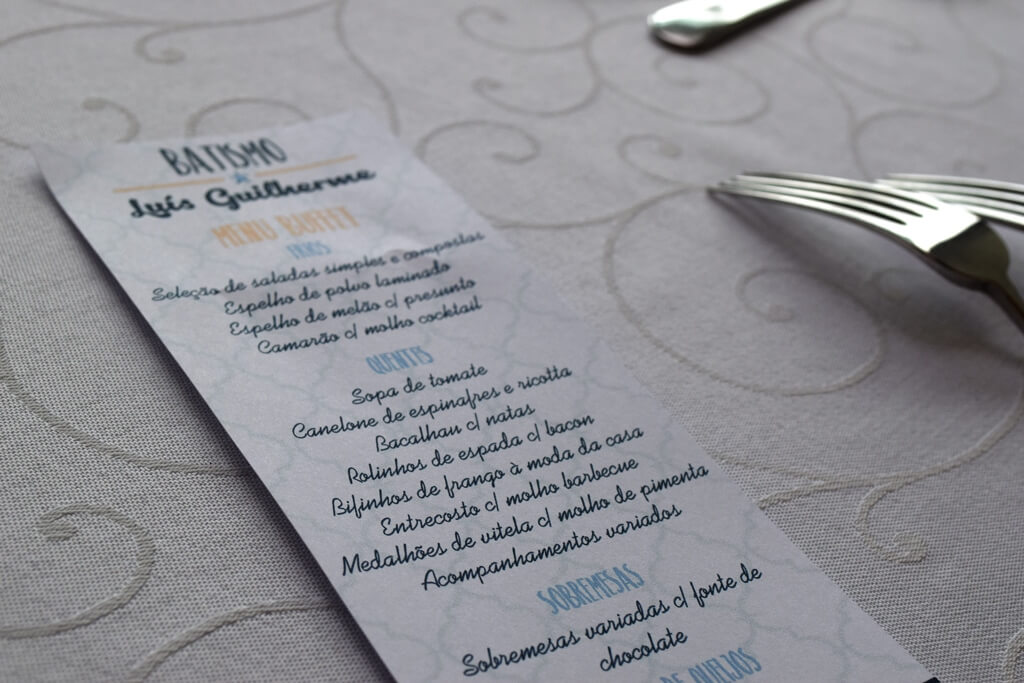 BATISMO
Luís Guilherme
MENU BUFFET
FRIOS
Seleção de saladas simples e compostas
Espelho de polvo laminado
Espelho de melão c/ presunto
Camarão c/ molho cocktail
QUENTES
Sopa de tomate
Canelone de espinafres e ricotta
Bacalhau c/ natas
Rolinhos de espada c/ bacon
Bifinhos de frango à moda da casa
Entrecosto c/ molho barbecue
Medalhões de vitela c/ molho de pimenta
Acompanhamentos variados
SOBREMESAS
Sobremesas variadas c/ fonte de
chocolate
DE QUEIJOS